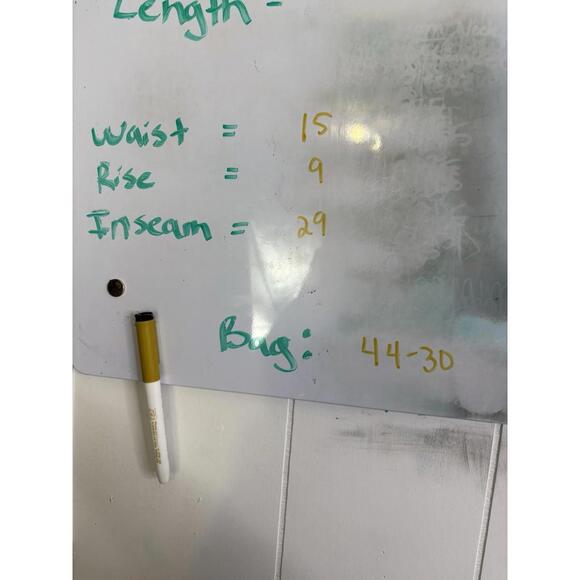 Length -
Waist = 15
Rise = 9
Inseam = 29
Bag: 44-30